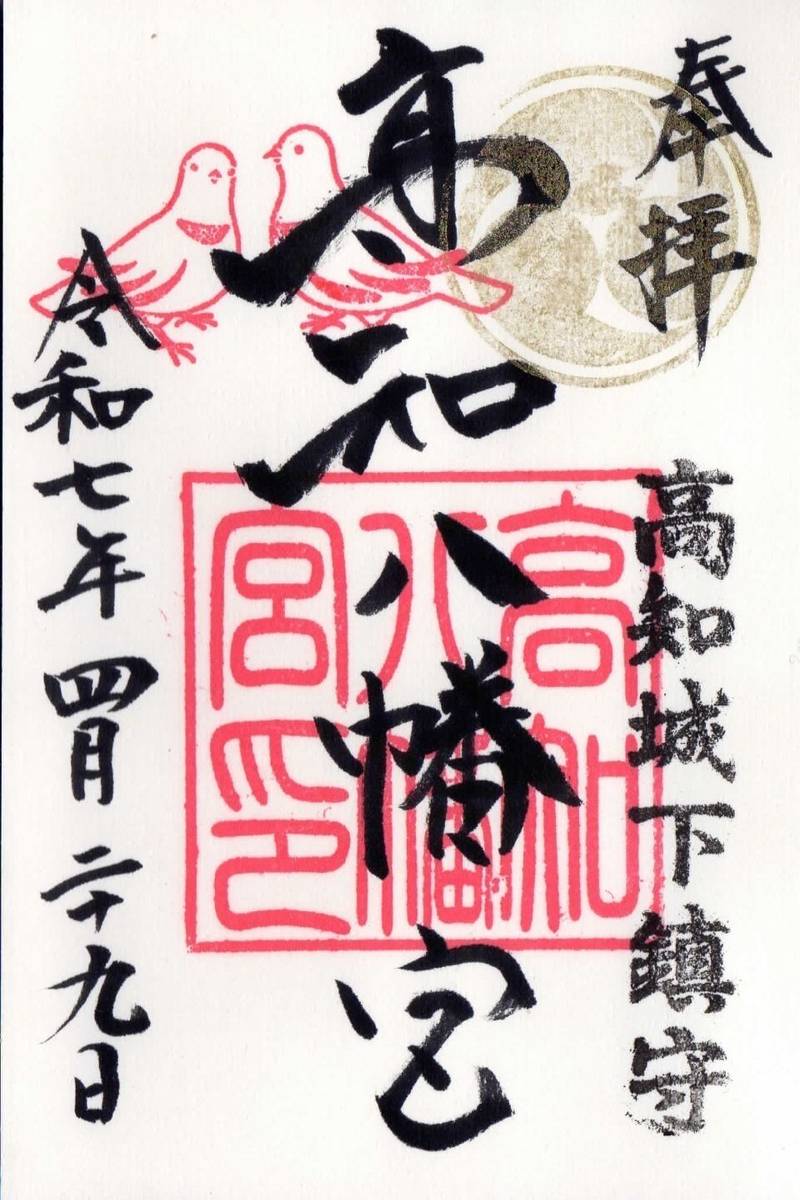 奉拝
高知城下鎮守
高知八幡宮
高知
八幡
宮印
令和七年四月二十九日